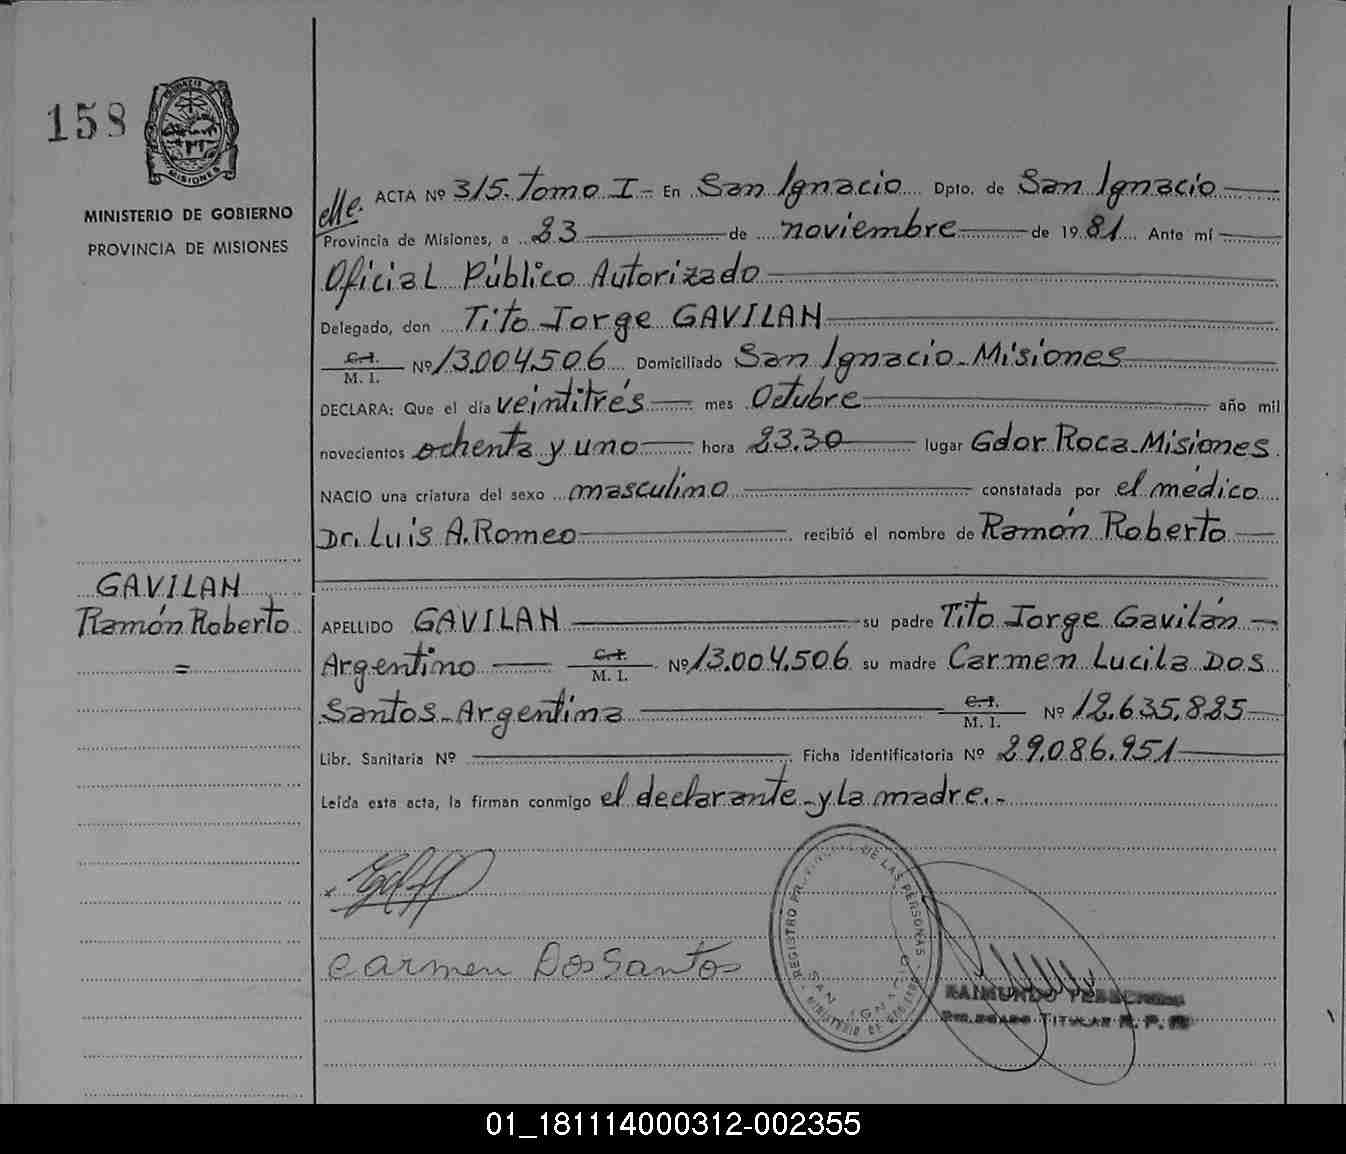 158
PROVINCIA DE
MISIONES
MINISTERIO DE GOBIERNO
PROVINCIA DE MISIONES
ACTA Nº 315. Tomo I - En San Ignacio Dpto. de San Ignacio
Provincia de Misiones, a 23 de noviembre de 1981 Ante mí
Oficial Público Autorizado
Delegado, don Tito Jorge GAVILAN
C.I. M. I. Nº 13.004.506 Domiciliado San Ignacio - Misiones
DECLARA: Que el día veintitrés mes Octubre año mil
novecientos ochenta y uno hora 23.30 lugar Gdor. Roca - Misiones
NACIO una criatura del sexo masculino constatada por el médico
Dr. Luis A. Romeo recibió el nombre de Ramón Roberto
GAVILAN
Ramón Roberto
=
APELLIDO GAVILAN su padre Tito Jorge Gavilán
Argentino C.I. M. I. Nº 13.004.506 su madre Carmen Lucila Dos
Santos - Argentina C.I. M. I. Nº 12.635.825
Libr. Sanitaria Nº Ficha identificatoria Nº 29.086.951
Leída esta acta, la firman conmigo el declarante - y la madre. -
Carmen Dos Santos
REGISTRO PROVINCIAL DE LAS PERSONAS
SAN IGNACIO
MINISTERIO DE GOBIERNO
RAIMUNDO
DELEGADO TITULAR R. P. P.
01_181114000312-002355